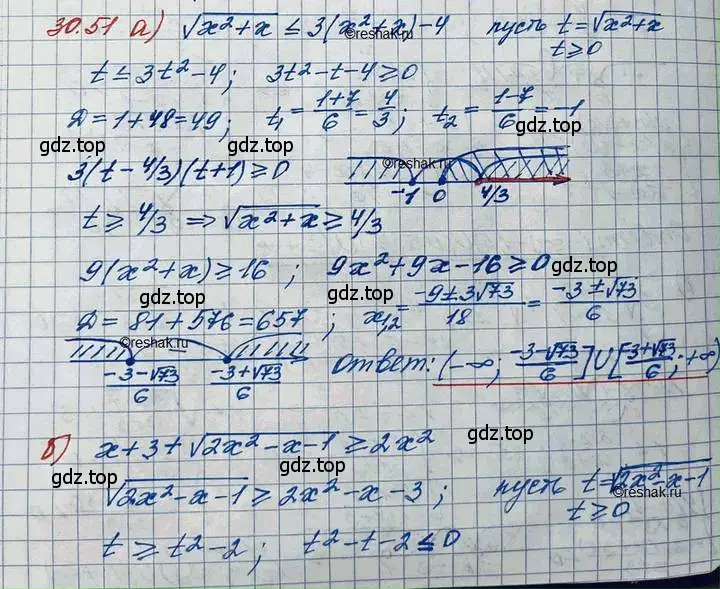 30.51 а) √(x²+x) ≤ 3(x²+x)-4 пусть t=√(x²+x)
©reshak.ru
t≥0
t ≤ 3t²-4; 3t²-t-4≥0
Д=1+48=49; t₁=(1+7)/6=4/3; t₂=(1-7)/6=-1
gdz.top gdz.top gdz.top
3(t-4/3)(t+1)≥0
©reshak.ru
-1 0 4/3
t≥4/3 ⇒ √(x²+x)≥4/3
9(x²+x)≥16; 9x²+9x-16≥0
gdz.top gdz.top gdz.top
Д=81+576=657; x₁,₂=(-9±3√73)/18=(-3±√73)/6
©reshak.ru
(-3-√73)/6 (-3+√73)/6
ответ: (-∞; (-3-√73)/6]∪[(-3+√73)/6; +∞)
gdz.top gdz.top gdz.top
б) x+3+√(2x²-x-1) ≥ 2x²
√(2x²-x-1) ≥ 2x²-x-3; пусть t=√(2x²-x-1)
©reshak.ru
t≥0
t ≥ t²-2; t²-t-2≤0
gdz.top gdz.top gdz.top